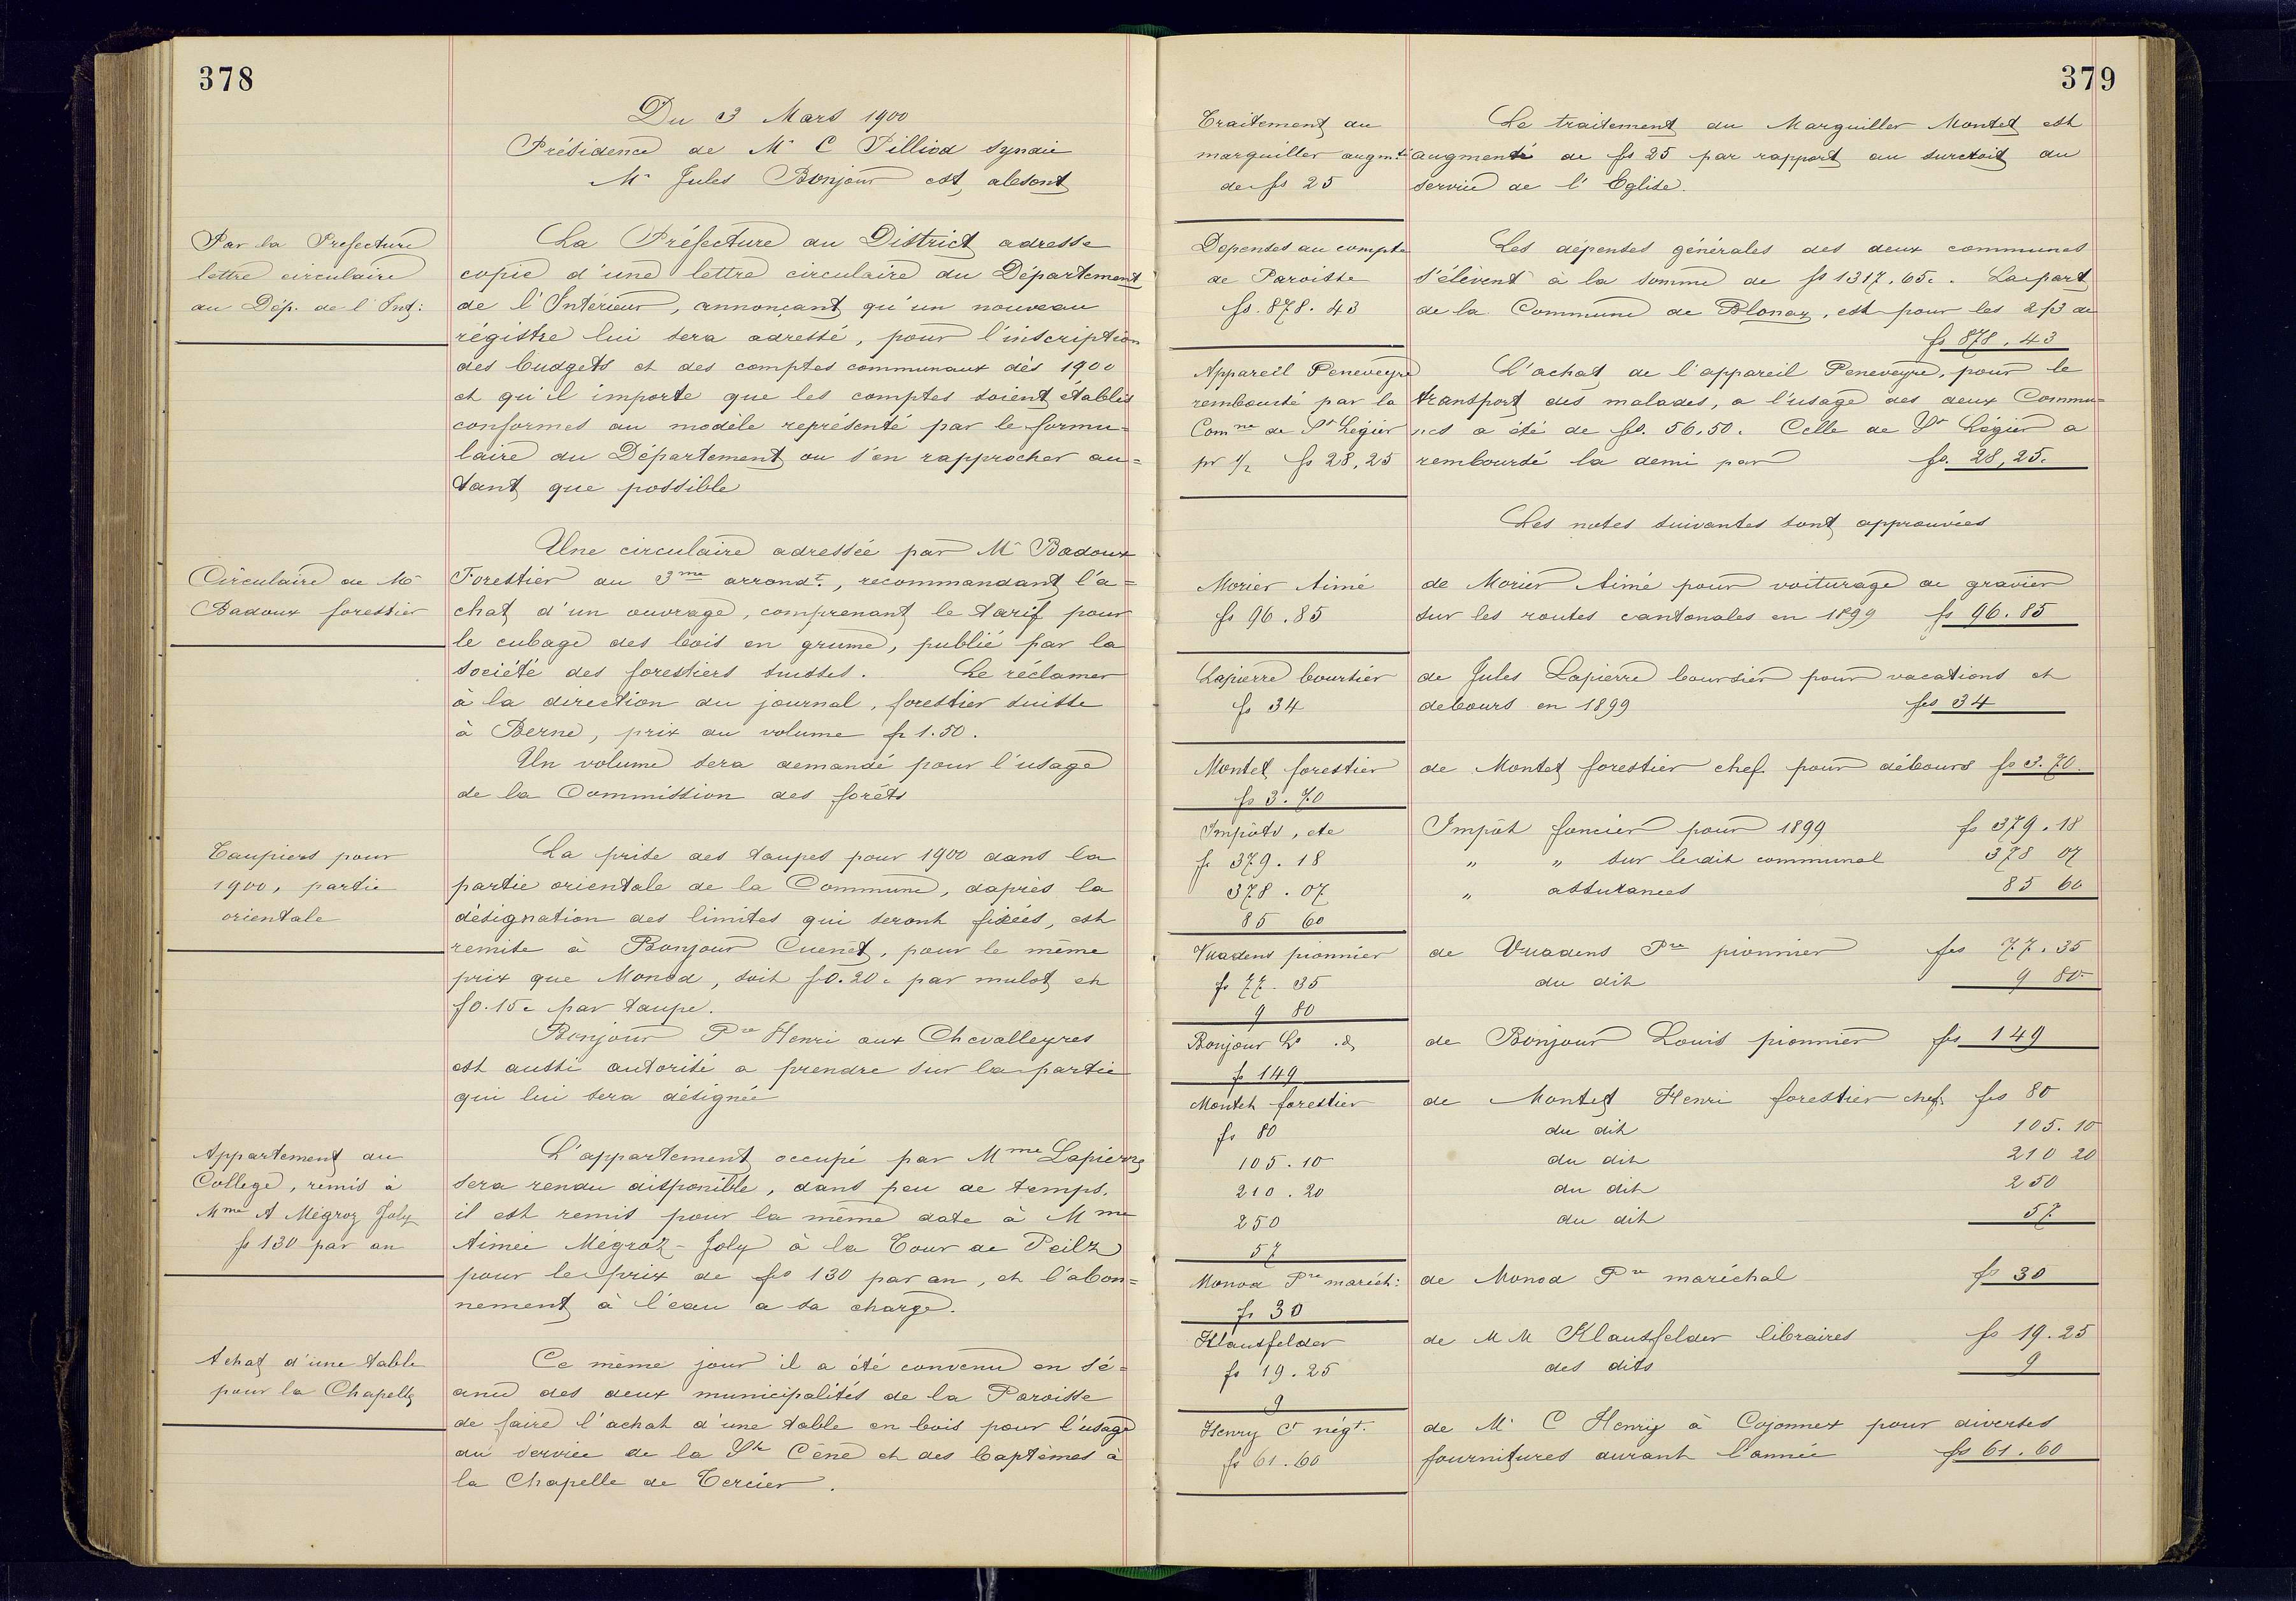 378
Du 3 Mars 1900
Présidence de Mr C Pilliod syndic
Mr Jules Bonjour est absent
Par la Prefecture
lettre circulaire
du Dép. de l'Int:
La Préfecture du District adresse
copie d'une lettre circulaire du Département
de l'Intérieur, annonçant qu'un nouveau
régistre lui sera adressé, pour l'inscription
des budgets et des comptes communaux dès 1900
et qu'il importe que les comptes soient établis
conformes au modèle représenté par le formu=
laire du Département ou s'en rapprocher au=
tant que possible
Circulaire de Mr
Badoux forestier
Une circulaire adressée par Mr Badoux
Forestier du 3me arrondt., recommandant l'a=
chat d'un ouvrage, comprenant le tarif pour
le cubage des bois en grume, publié par la
société des forestiers suisses. Le réclamer
à la direction du journal, forestier suisse
à Berne, prix du volume fr 1.50.
Un volume sera demandé pour l'usage
de la Commission des forêts
Taupiers pour
1900, partie
orientale
La prise des taupes pour 1900 dans la
partie orientale de la Commune, daprès la
désignation des limites qui seront fixées, est
remise à Bonjour Cuenet, pour le même
prix que Monod, soit f 0.20 c par mulot et
f 0.15 c par taupe.
Bonjour Pre Henri aux Chevalleyres
est aussi autorisé a prendre sur la partie
qui lui sera désignée
Appartement du
College, remis à
Mme A Mégroz Joly
fs 130 par an
L'appartement occupé par Mme Lapierre
sera rendu disponible, dans peu de temps.
il est remis pour la même date à Mme
Aimée Megroz-Joly à la Tour de Peilz
pour le prix de fs 130 par an, et l'abon=
nement à l'eau a sa charge.
Achat d'une table
pour la Chapelle
Ce même jour il a été convenu en sé=
ance des deux municipalités de la Paroisse
de faire l'achat d'une table en bois pour l'usage
du service de la Ste Cène et des baptêmes à
la Chapelle de Tercier.
379
Traitement du
marguiller augmté
de fs 25
Le traitement du Marguiller Montet est
augmenté de fs 25 par rapport au surcroit du
service de l'Eglise.
Dépenses au compte
de Paroisse
fs. 878.43
Les dépenses générales des deux communes
s'élèvent à la somme de fs 1317.65c. La part
de la Commune de Blonay, est pour les 2/3 de
fs 878.43
Appareil Peneveyre
remboursé par la
Comne de St Légier
pr 1/2 fs 28,25
L'achat de l'appareil Peneveyre, pour le
transport des malades, a l'usage des deux Commu=
nes a été de fs. 56.50. Celle de St Légier a
remboursé la demi par fs. 28,25.
Les notes suivantes sont approuvées
Morier Aimé
fs 96.85
de Morier Aimé pour voiturage de gravier
sur les routes cantonales en 1899 fs 96.85
Lapierre boursier
fs 34
de Jules Lapierre boursier pour vacations et
debours en 1899 fs 34
Montet forestier
fs 3.70
de Montet forestier chef pour débours fs 3.70.
Impôts, etc
fr 379.18
378.07
85 60
Impôt foncier pour 1899 fs 379.18
" " sur le dit communal 378 07
" assurances 85 60
Vuadens pionnier
fs 77.35
9 80
de Vuadens Pre pionnier fs 77.35
du dit 9 80
Bonjour Ls .d
fs 149
de Bonjour Louis pionnier fs 149
Montet forestier
fs 80
105.10
210.20
250
57
de Montet Henri forestier chef fs 80
du dit 105.10
du dit 210 20
du dit 250
du dit 57
Monod Pre maréch:
fr 30
de Monod Pre maréchal fs 30
Klausfelder
fs 19.25
9
de MM Klausfelder libraires fs 19.25
des dits 9
Henry Ct négt.
fs 61.60
de Mr C Henry à Cojonnex pour diverses
fournitures durant l'année fs 61.60